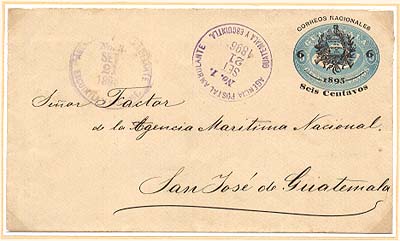 CORREOS NACIONALES
6 6
1895
Seis Centavos
AGENCIA POSTAL AMBULANTE
No. 1.
SET
21
1896
GUATEMALA Y ESCUINTLA.
SET
21
Señor Factor
de la Agencia Maritima Nacional.
San José de Guatemala